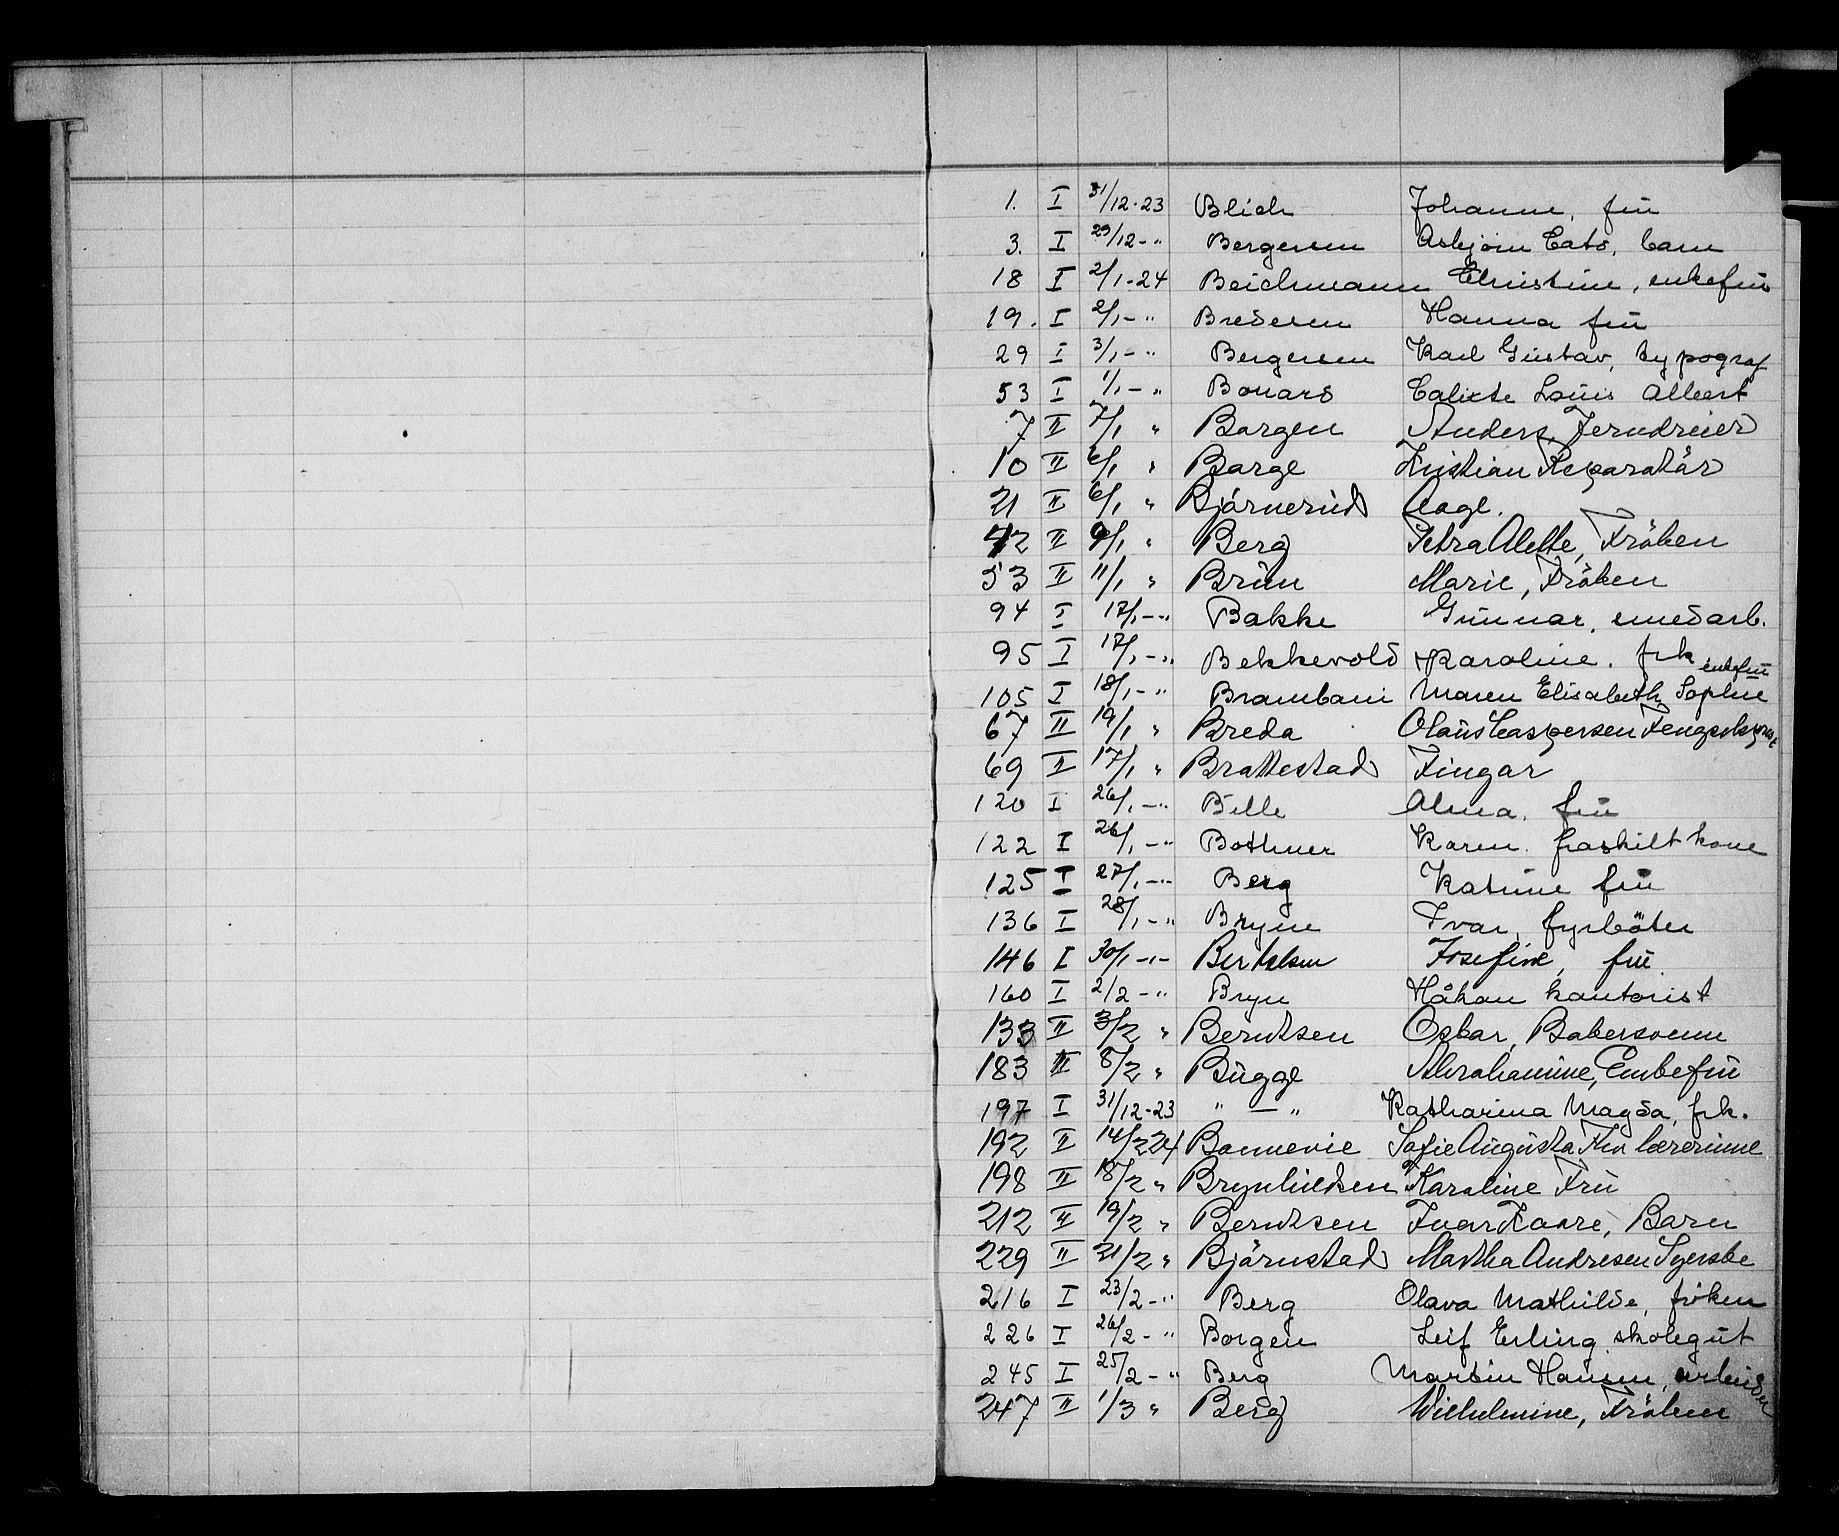 1. I 31/12-23 Blich Johanne, frü
3. I 29/12-" Bergersen Asbjørn Cato, barn
18 I 2/1-24 Beichmann Christine, enkefrü
19. I 2/1-" Bredesen Hanna frü
29 I 3/1-" Bergersen Karl Güstav, typograf
53 I 1/1-" Bonard Calixte Loüis Albert
7 II 7/1 " Borgen Anders, Jerndreier
10 II 6/1 " Borge Kristian Reparatör
21 II 6/1 " Bjørnerüd Aage.
42 II 9/1 " Berg Petra Alette, Fröken
53 II 11/1 " Brün Marie, Fröken
94 I 17/1-" Bakke Günnar, smedarb.
95 I 17/1-" Bekkevold Karoline. frk
105 I 18/1-" Brambani Maren Elisabeth Sophie enkefrü
67 II 19/1 " Breda Olaüs Caspersen Fengselsprest
69 II 17/1 " Brattestad Fingar
120 I 26/1-" Bille Alma. frü
122 I 26/1-" Bothner Karen. fraskilt kone
125 I 27/1-" Berg Katrine frü
136 I 28/1-" Bryne Ivar, fyrböter
146 I 30/1-"- Bertelsen Josefine, frü
160 I 2/2-" Bryn Håkon kontorist
133 II 3/2 " Berntsen Oskar, Bakersvenn
183 II 8/2 " Bügge Abrahamine, Enkefrü
197 I 31/12-23 "—" Katharina Magda, frk.
192 II 14/2 24 Bonnevie Sofie Augüsta Frk lærerinne
198 II 18/2 " Brynhildsen Karoline Frü
212 II 19/2 " Berntsen Ivar Kaare, Barn
229 II 21/2 " Björnstad Martha Andresen Syerske
216 I 23/2-" Berg Olava Mathilde, fröken
226 I 26/2-" Borgen Leif Erling, skolegüt
245 I 25/2-" Berg Martin Hansen, arbeider
247 II 1/3 " Berg Wilhelmine, Fröken